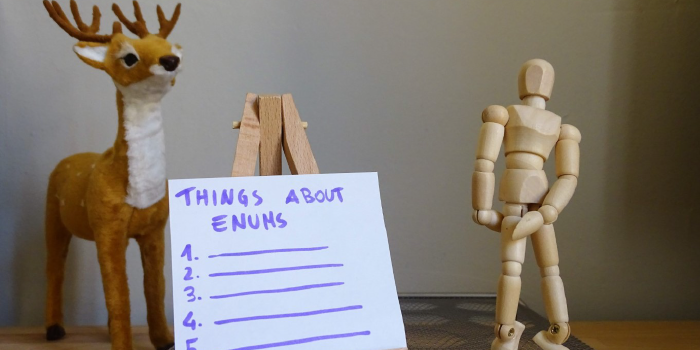 THINGS ABOUT
ENUMS
1.
2.
3.
4.
5.